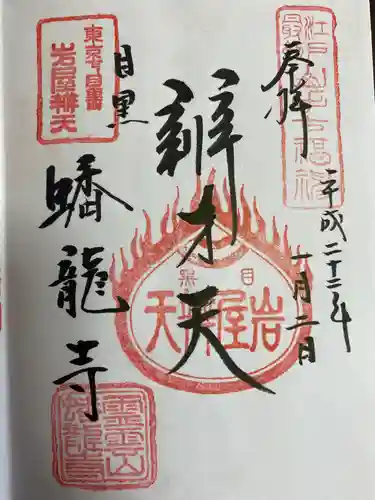 奉拝
平成二十二年
一月二日
辨才天
目黒
蟠龍寺
江戸
最
目黒
岩屋辨天
東京目黒
岩屋辨天
霊雲山
蟠龍寺